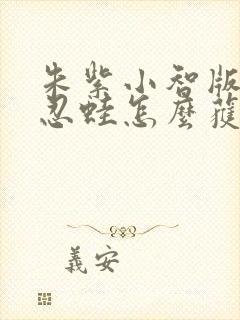 朱紫小智版
忍蛙怎麼獲
義安